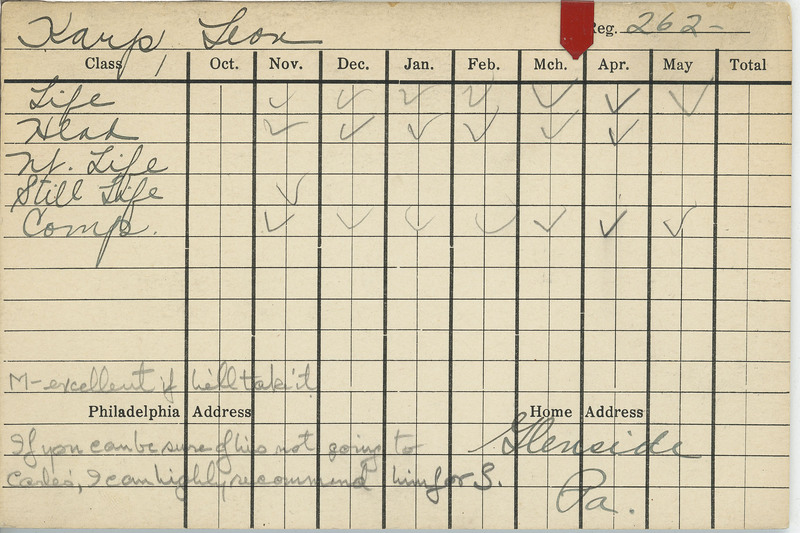 Karp, Leon
Reg. 262-
Class Oct. Nov. Dec. Jan. Feb. Mch. Apr. May Total
Life ✓ ✓ ✓ ✓ ✓ ✓ ✓
Head ✓ ✓ ✓ ✓ ✓ ✓
Nt. Life
Still Life ✓
Comp. ✓ ✓ ✓ ✓ ✓ ✓ ✓
M-excellent if he'll take it
Philadelphia Address Home Address
If you can be sure of his not going to
Carles, I can highly recommend him for S.
Glenside
Pa.